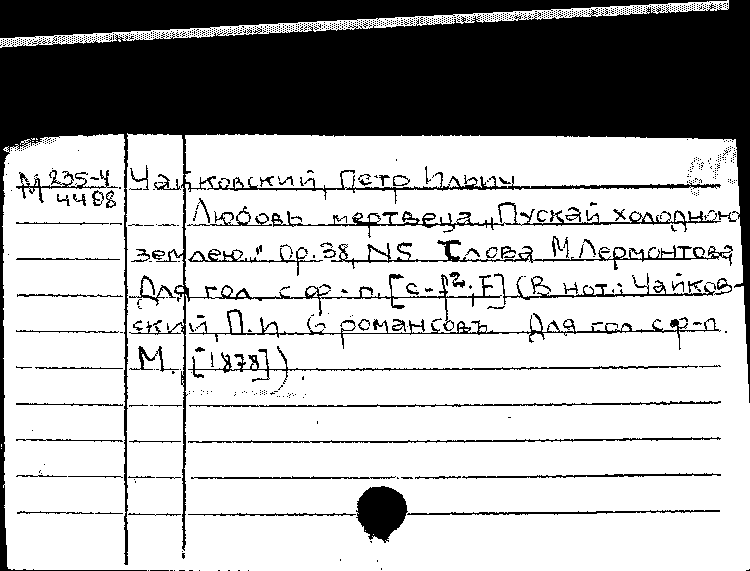 М 235-4 Чайковский, Петр Ильич
4498
Любовь мертвеца „Пускай холодною
землею." Ор.38, N5 Слова М.Лермонтова
Для гол. с ф-п. [c-f²; F] (В нот.: Чайков-
ский, П.И. 6 романсовъ. Для гол. с ф-п.
М., [1878]).